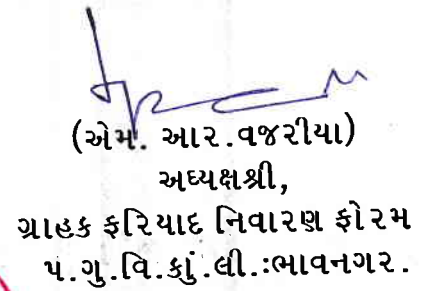 (એમ. આર.વજરીયા)
અધ્યક્ષશ્રી,
ગ્રાહક ફરિયાદ નિવારણ ફોરમ
પ.ગુ.વિ.કાં.લી.:ભાવનગર.